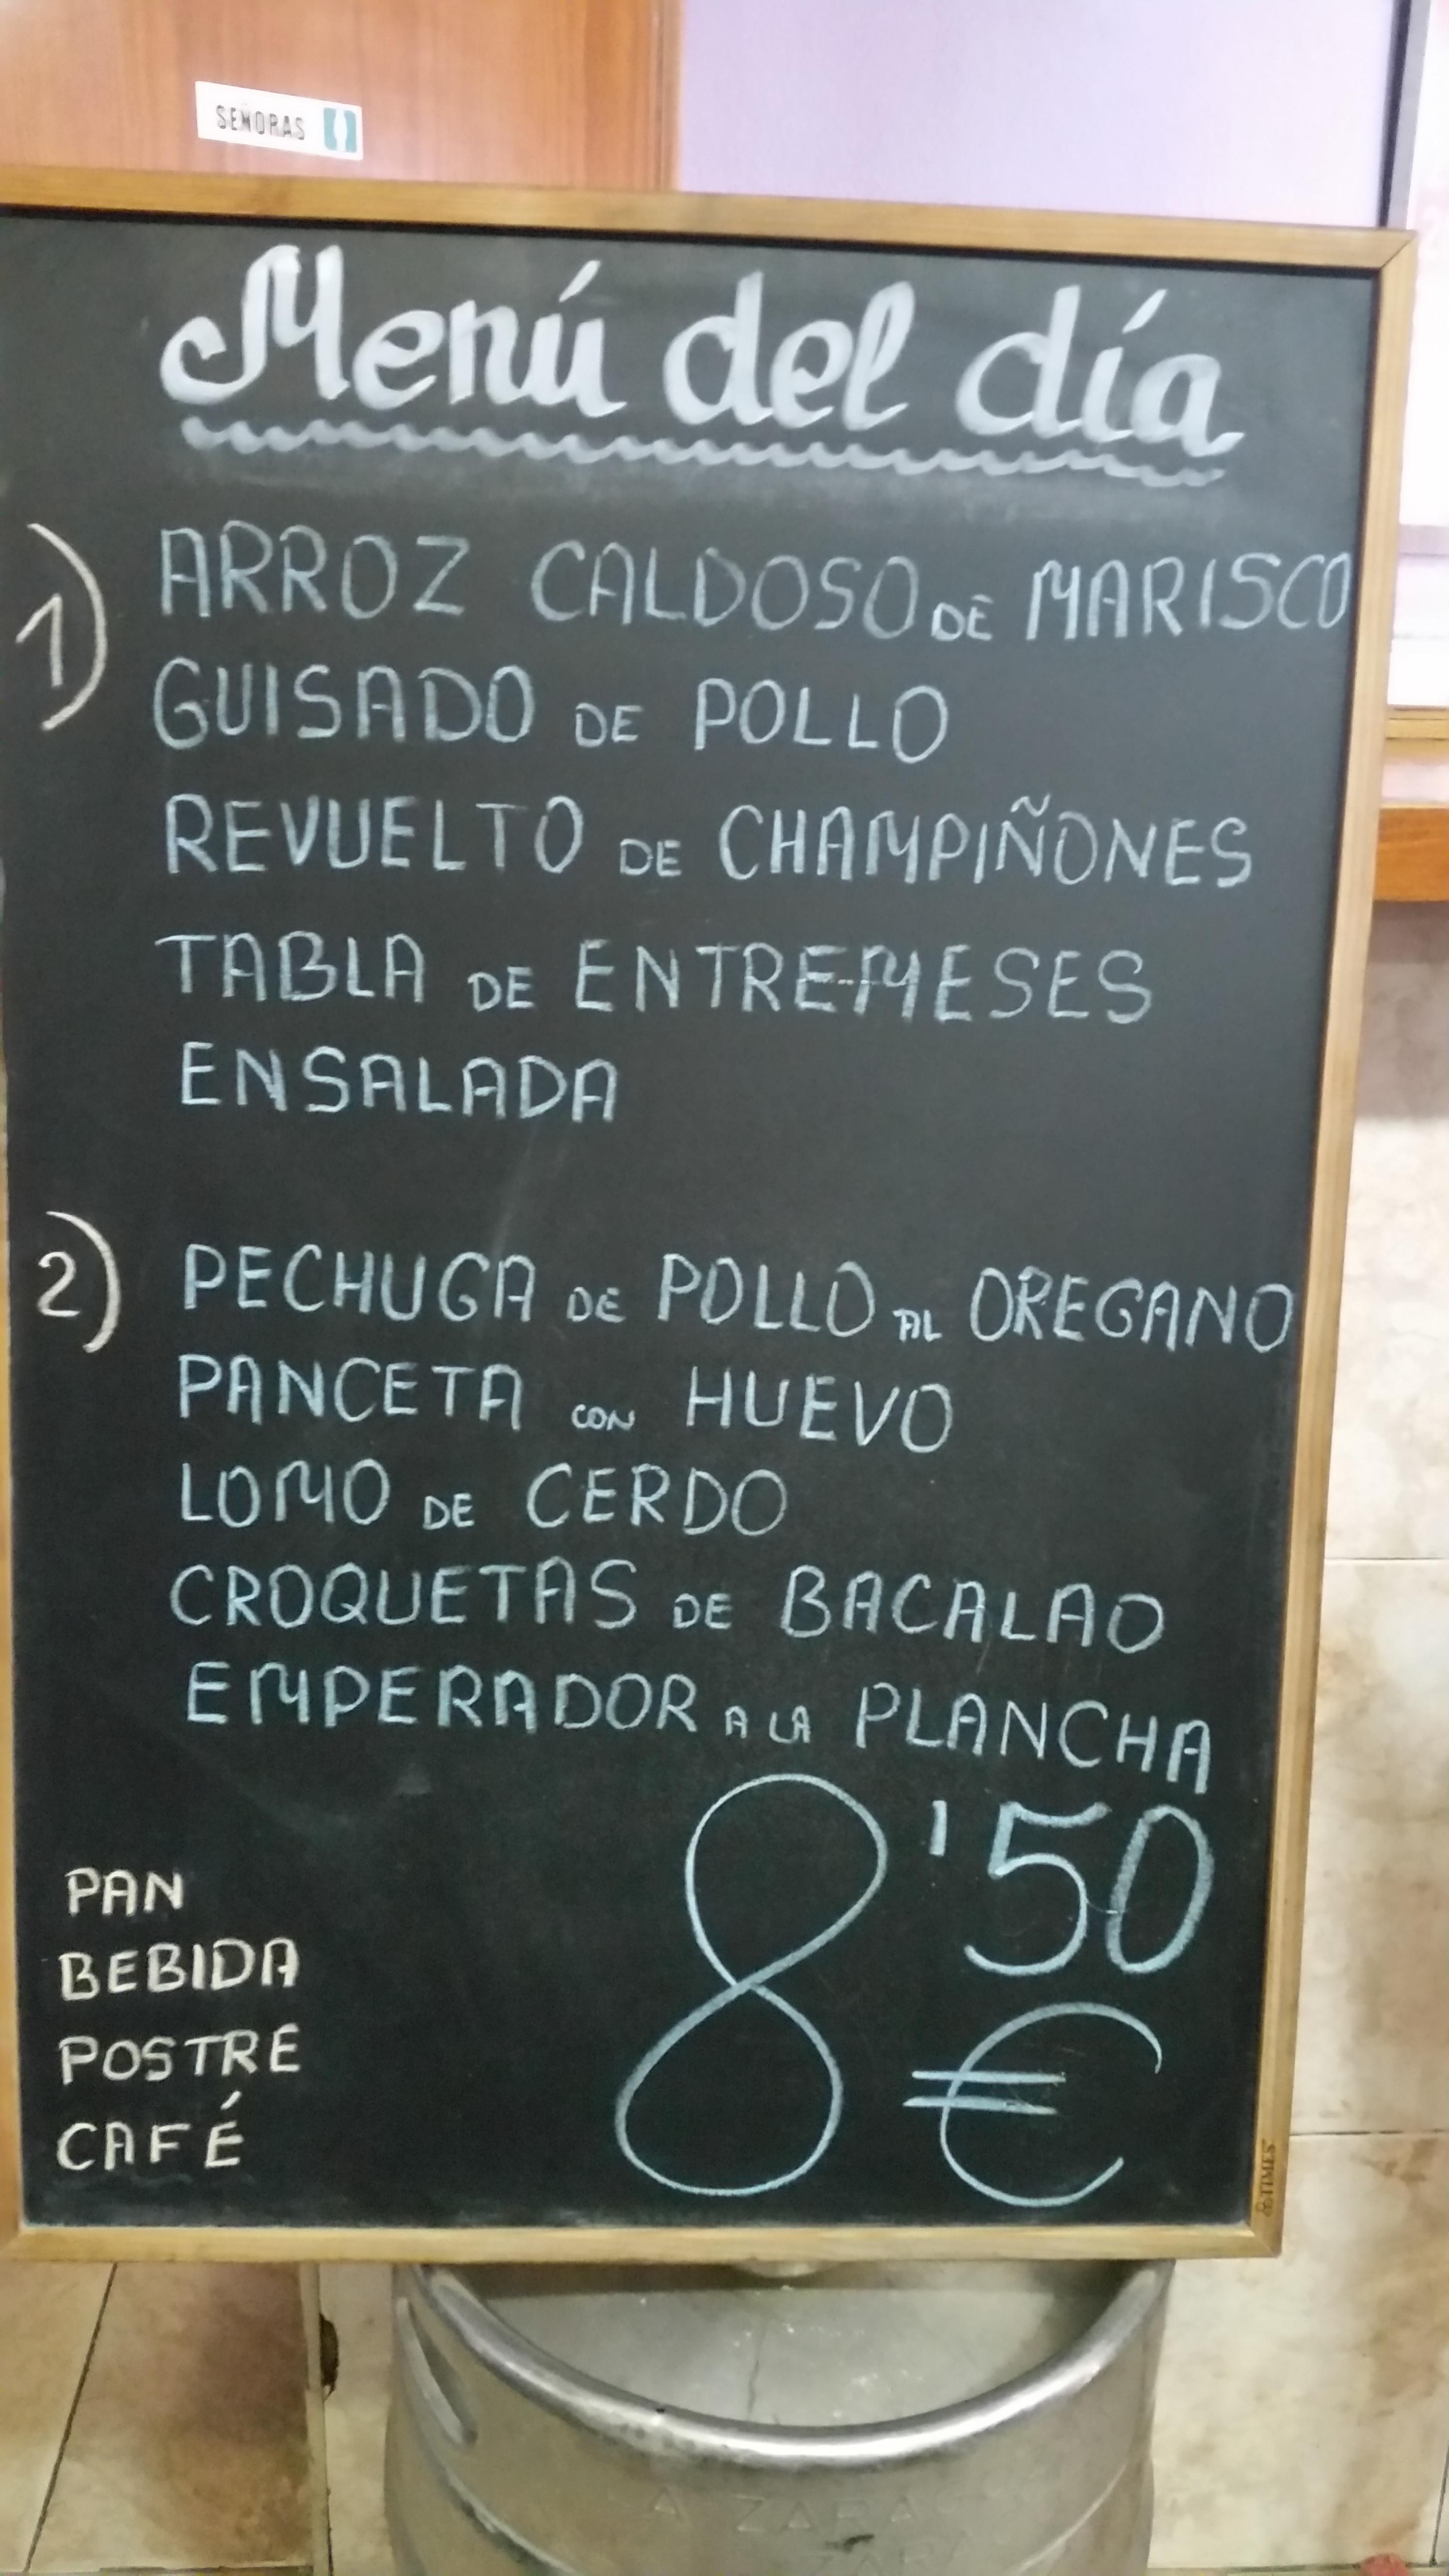 SEÑORAS
Menú del día
1) ARROZ CALDOSO DE MARISCO
GUISADO DE POLLO
REVUELTO DE CHAMPIÑONES
TABLA DE ENTREMESES
ENSALADA
2) PECHUGA DE POLLO AL OREGANO
PANCETA CON HUEVO
LOMO DE CERDO
CROQUETAS DE BACALAO
EMPERADOR A LA PLANCHA
8'50
€
PAN
BEBIDA
POSTRE
CAFÉ
TIMES